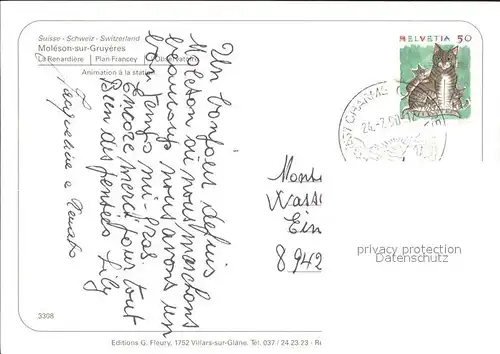 Suisse - Schweiz - Switzerland
Moléson-sur-Gruyères
La Renardière | Plan-Francey | L'Observatoire
Animation à la station
HELVETIA 50
1637 CHARMEY
Un bonjour depuis
Moléson où nous marchons
beaucoup nous avons un
bon temps mi-gras
Encore merci pour tout
Bien des pensées Lily
Jacqueline e Renato
8942
privacy protection
Datenschutz
3308
Editions G. Fleury, 1752 Villars-sur-Glâne. Tél. 037 / 24 23 23 - R